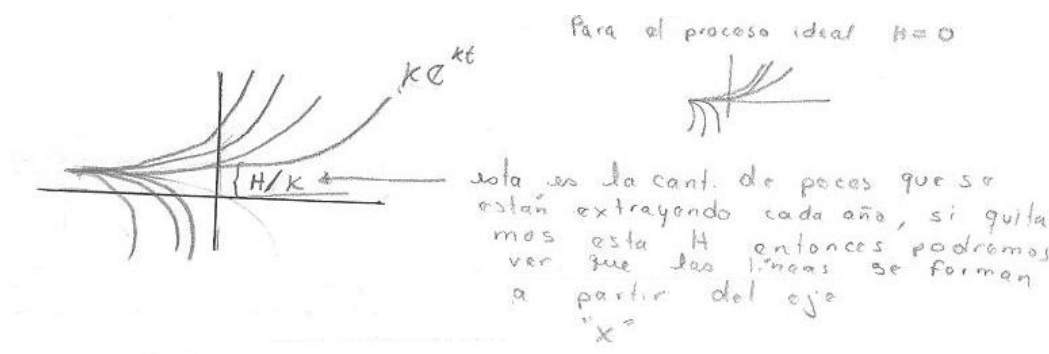 Para el proceso ideal H=0
ke^kt
{ H/K
esta es la cant. de peces que se
están extrayendo cada año, si quita
mos esta H entonces podremos
ver que las líneas se forman
a partir del eje
"x"